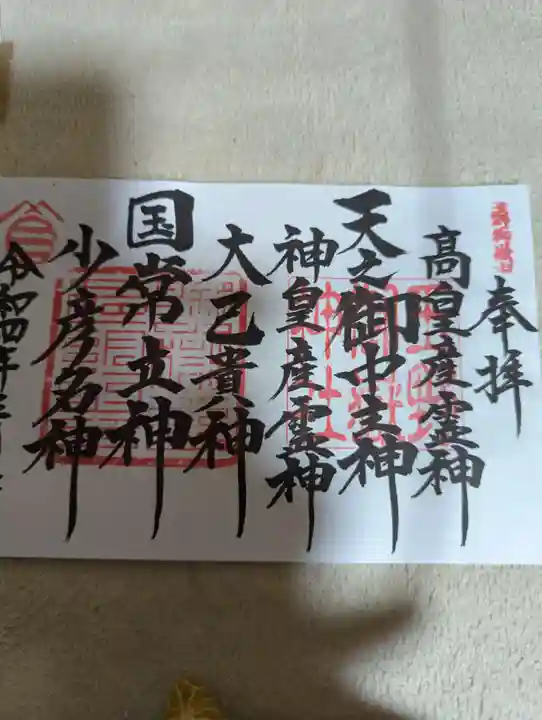 奉拝
高皇産霊神
天之御中主神
神皇産霊神
大己貴神
国常立神
少彦名神
令和四年三月